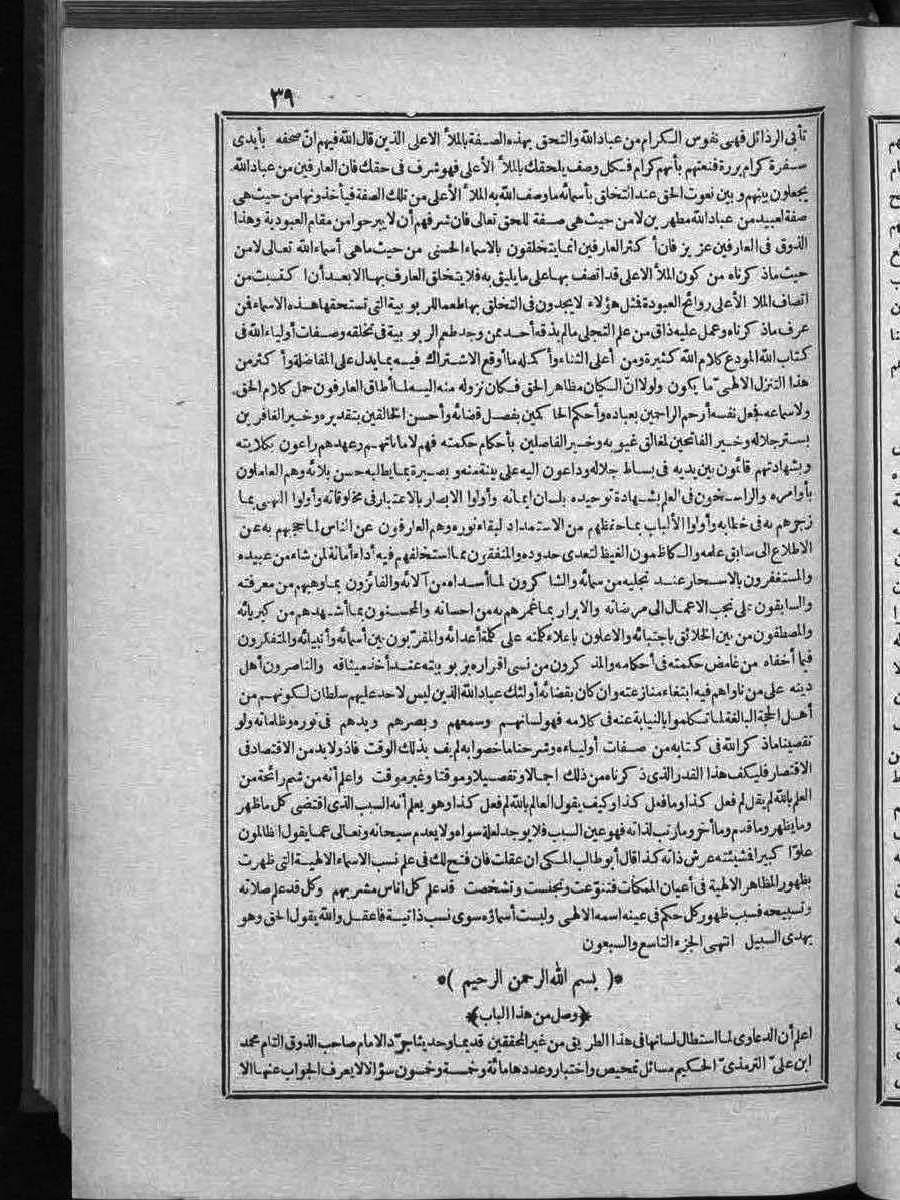 ٣٩
تأبى الرذائل فهى نفوس الكرام من عباد الله والتحق بهذه الصفة بالملأ الاعلى الذين قال الله فيهم ان صحفه بأيدى
سفرة كرام بررة فنعتهم بأنهم كرام فكل وصف يلحقك بالملأ الأعلى فهو شرف فى حقك فان العارفين من عباد الله
يجعلون بينهم وبين نعوت الحق عند التخلق بأسمائه ما وصف الله به الملأ الأعلى من تلك الصفة فيأخذونها من حيث هى
صفة لعبيد من عباد الله مطهرين لا من حيث هى صفة للحق تعالى فان شرفهم أن لا يبرحوا من مقام العبودية وهذا
الذوق فى العارفين عزيز فان أكثر العارفين انما يتخلقون بالاسماء الحسنى من حيث ما هى أسماء الله تعالى لا من
حيث ماذكرناه من كون الملأ الاعلى قد اتصف بها على ما يليق به فلا يتخلق العارف بها الا بعد أن اكتسبت من
اتصاف الملا الأعلى روائح العبودة فمثل هؤلاء لا يجدون فى التخلق بها طعما للربوبية التى تستحقها هذه الاسماء فمن
عرف ماذكرناه وعمل عليه ذاق من علم التجلى مالم يذقه أحد ممن وجد طعم الربوبية فى تخلقه وصفات أولياء الله فى
كتاب الله المودع كلام الله كثيرة ومن أعلى الثناء وأكمله ما أوقع الاشتراك فيه بما يدل على المفاضلة وأكثر من
هذا التنزل الالهىّ ما يكون ولولا انّ السكان مظاهر الحق فكان نزوله منه اليه لما أطاق العارفون حمل كلام الحق
ولا سماعه فجعل نفسه أرحم الراحمين بعباده وأحكم الحاكمين بفصل قضائه وأحسن الخالقين بتقديره وخير الغافرين
بستر جلاله وخير الفاتحين لمغالق غيوبه وخير الفاصلين بأحكام حكمته فهم لاماناتهم وعهدهم راعون بكلايته
وبشهادتهم قائمون بين يديه فى بساط جلاله وداعون اليه على بينة منه وبصيرة بما يطلبه حسن بلائه وهم العاملون
بأوامره والراسخون فى العلم بشهادة توحيده بلسان ايمانه وأولوا الابصار بالاعتبار فى مخلوقاته وأولوا النهى بما
زجرهم به فى خطابه وأولوا الألباب بما حفظهم من الاستمداد لبقاء نوره وهم العارفون عن الناس لما حجبهم به عن
الاطلاع الى سابق علمه والكاظمون الغيظ لتعدى حدوده والمنفقون مما استخلفهم فيه أداء أمانة لمن شاء من عبيده
والمستغفرون بالاسحار عند تجليه من سمائه والشاكرون لما أسداه من آلائه والفائزون بما وهبهم من معرفته
والسابقون على نجب الاعمال الى مرضاته والابرار بما غمرهم به من احسانه والمحسنون بما أشهدهم من كبريائه
والمصطفون من بين الخلائق باجتبائه والاعلون باعلاء كلمته على كلمة أعدائه والمقرّبون بين أسمائه وأنبيائه والمتفكرون
فيما أخفاه من غامض حكمته فى أحكامه والمذكرون من نسى اقراره بربوبيته عند أخذ ميثاقه والناصرون أهل
دينه على من ناواهم فيه ابتغاء منازعته وان كان بقضائه أولئك عباد الله الذين ليس لاحد عليهم سلطان لكونهم من
أهل الحجة البالغة لما تكلموا بالنيابة عنه فى كلامه فهو لسانهم وسمعهم وبصرهم ويدهم فى نوره وظلماته ولو
تقصينا ماذكر الله فى كتابه من صفات أوليائه وشرحنا ما خصوا به لم يف بذلك الوقت فاذ ولا بد من الاقتصاد فى
الاقتصار فليكف هذا القدر الذى ذكرناه من ذلك اجمالا وتفصيلا وموقتا وغير موقت واعلم أنه من شم رائحة من
العلم بالله لم يقل لم فعل كذا وما فعل كذا وكيف يقول العالم بالله لم فعل كذا وهو يعلم أنه السبب الذى اقتضى كل ما ظهر
وما يظهر وما قدم وما أخر وما رتب لذاته فهو عين السبب فلا يوجد لعلة سواه ولا يعدم سبحانه وتعالى عما يقول الظالمون
علوّا كبيرا فمشيئته عرش ذاته كذا قال أبو طالب المكى ان عقلت فان فتح لك فى علم نسب الاسماء الالهية التى ظهرت
بظهور المظاهر الالهية فى أعيان الممكات فتنوّعت وتجنست وتشخصت قد علم كل اناس مشربهم وكل قد علم صلاته
وتسبيحه فسبب ظهور كل حكم فى عينه اسمه الالهى وليست أسماؤه سوى نسب ذاتية فاعقل والله يقول الحق وهو
يهدى السبيل انتهى الجزء التاسع والسبعون
*( بسم الله الرحمن الرحيم )*
﴿وصل من هذا الباب﴾
اعلم أن الدعاوى لما استطال لسانها فى هذا الطريق من غير المحققين قديما وحديثا جرّد الامام صاحب الذوق التام محمد
ابن علىّ الترمذىّ الحكيم مسائل تمحيص واختبار وعددها مائة وخمسة وخمسون سؤالا لا يعرف الجواب عنها الا